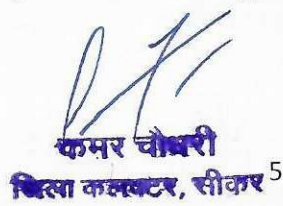 कमर चौधरी
जिला कलक्टर, सीकर 5